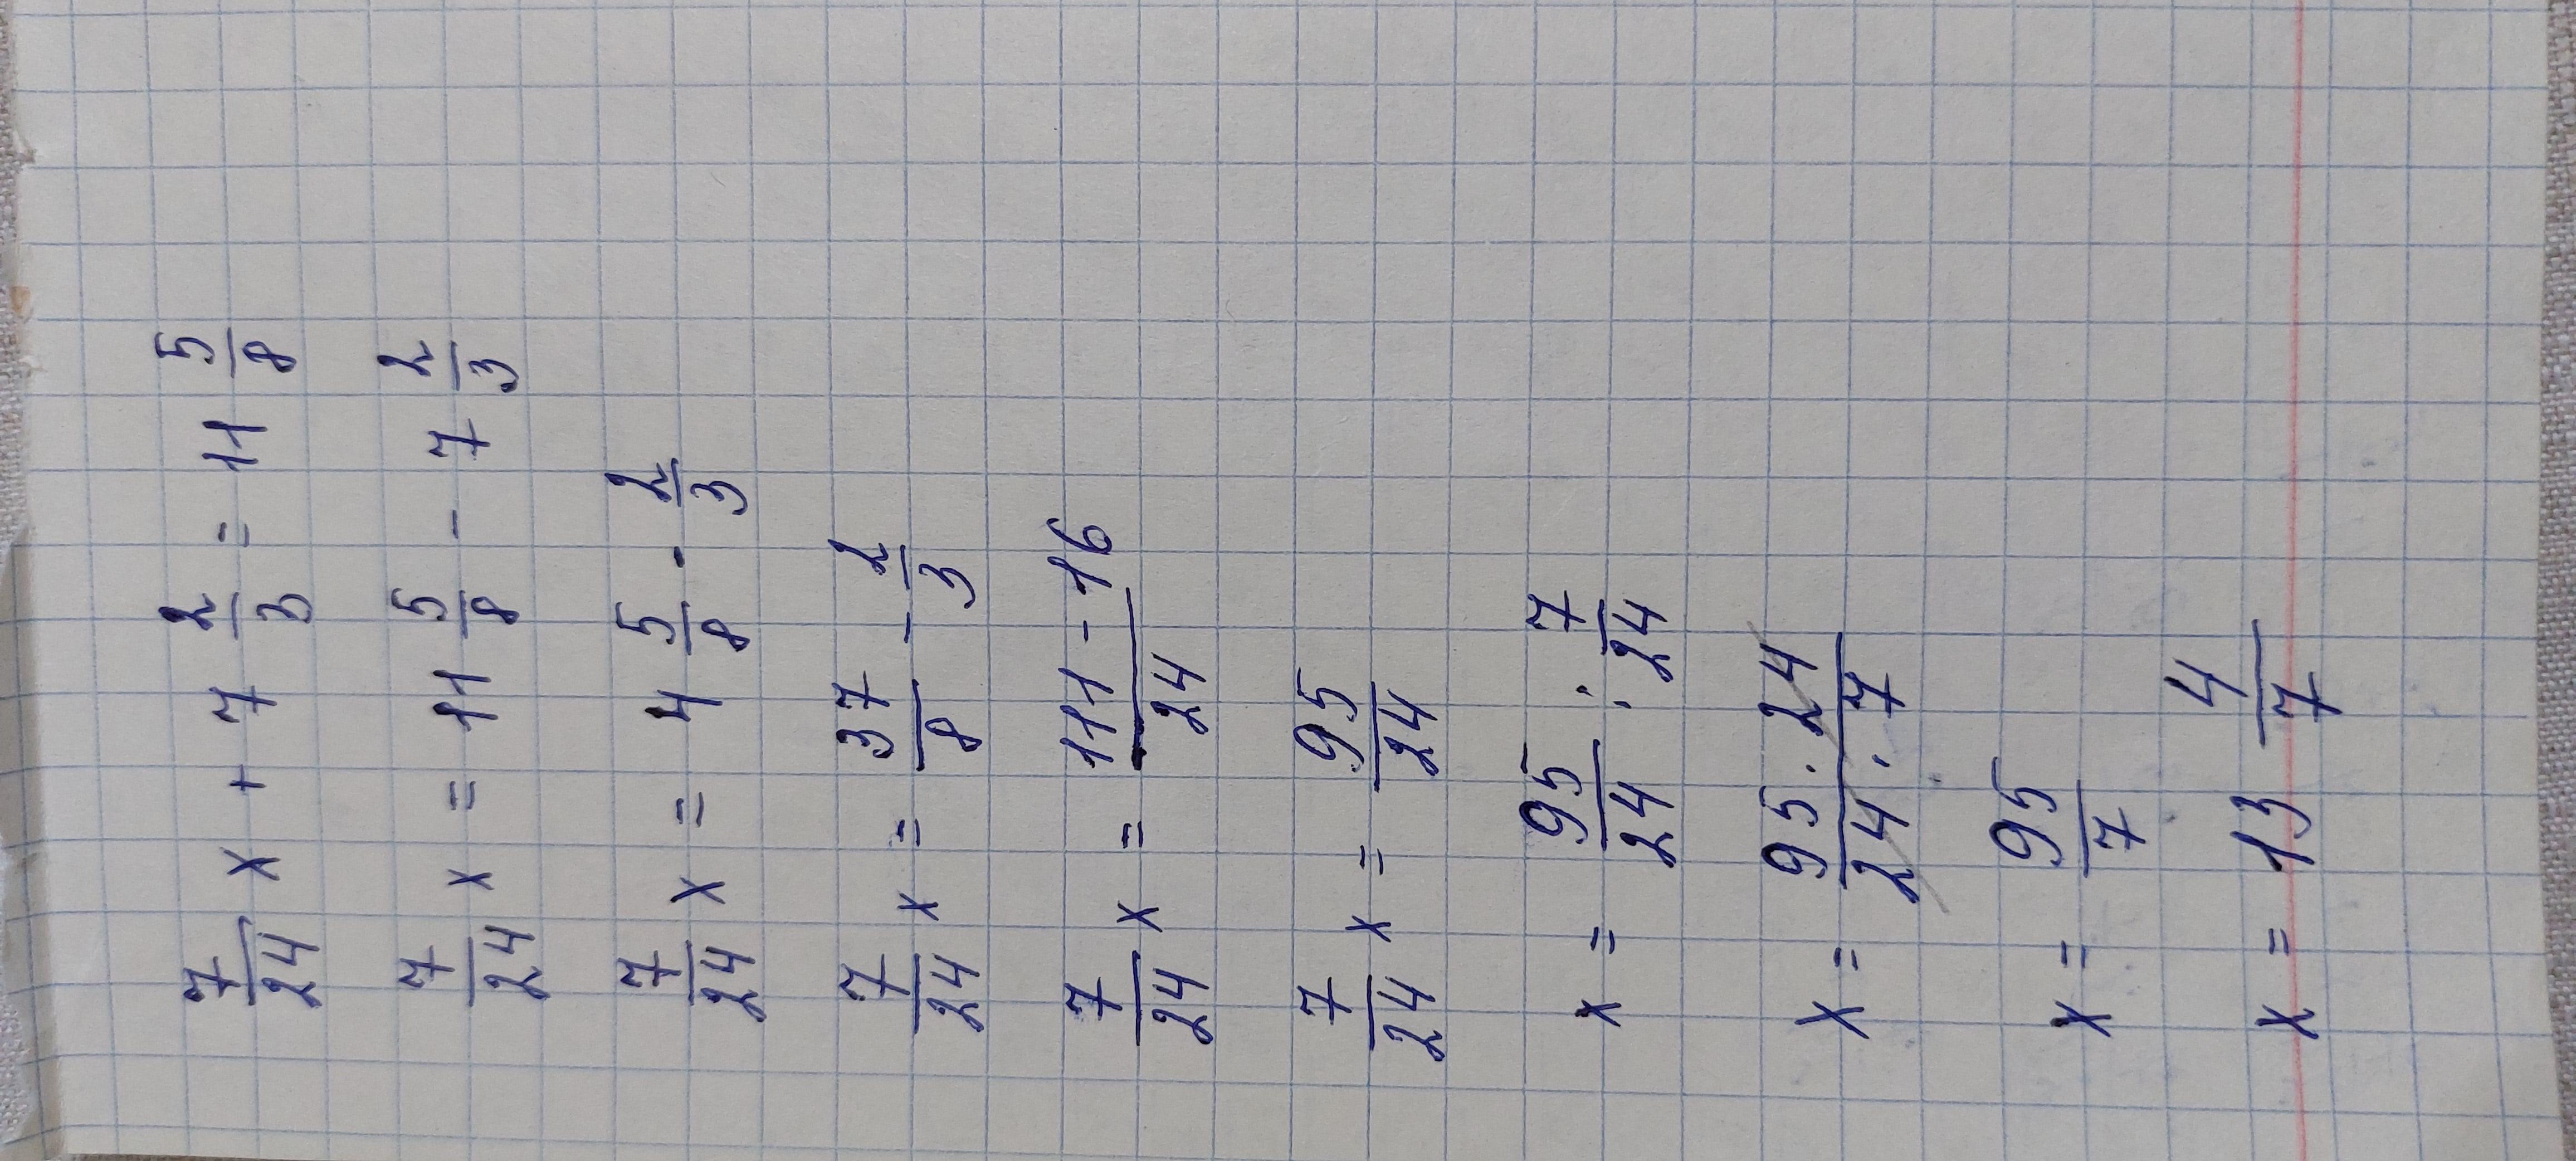 7/24 x + 7 2/3 = 11 5/8
7/24 x = 11 5/8 - 7 2/3
7/24 x = 4 5/8 - 2/3
7/24 x = 37/8 - 2/3
7/24 x = (111 - 16)/24
7/24 x = 95/24
x = 95/24 : 7/24
x = (95 · 24)/(24 · 7)
x = 95/7
x = 13 4/7